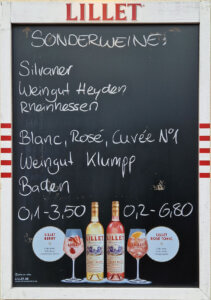 LILLET
SONDERWEINE:
Silvaner
Weingut Heyden
Rheinhessen
Blanc, Rosé, Cuvée N°1
Weingut Klumpp
Baden
0,1-3,50 0,2-6,80
LILLET
BERRY
LILLET
LILLET
LILLET
ROSÉ TONIC